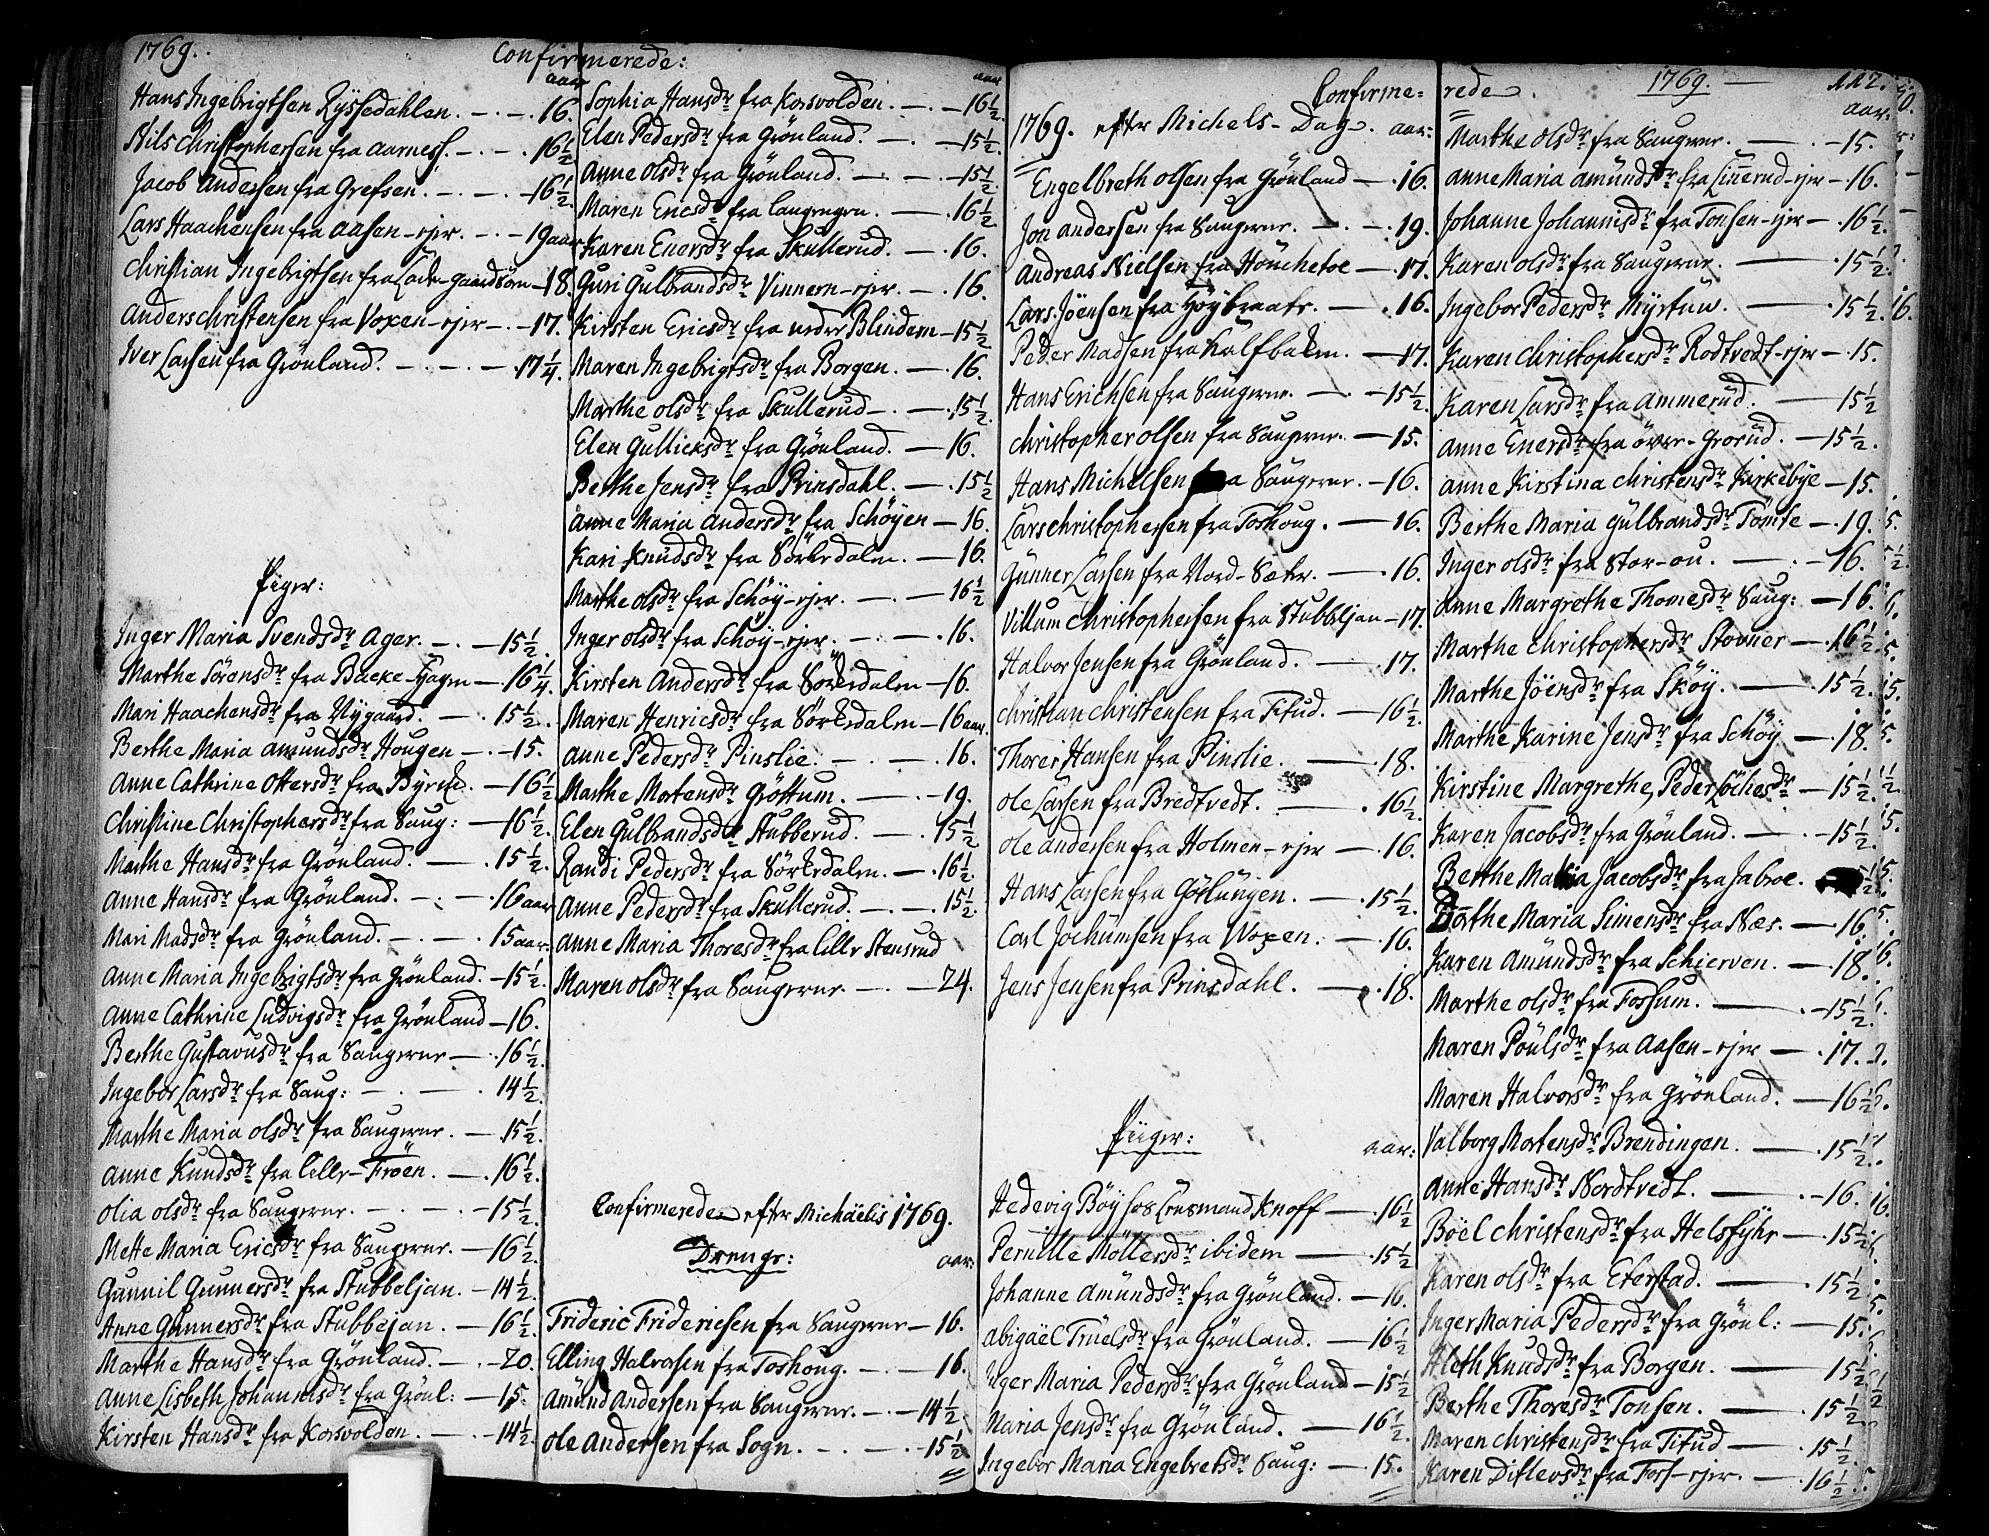 1769. Confirmerede:
aar
Hans Ingebrigtsen Ryssedahlen. — 16.
Nils Christophersen fra Aarnes. — 16 1/2
Jacob Andersen fra Grefsen. — 16 1/2.
Lars Haachensen fra Aasen-ejer. — 19 aar
Christian Ingebrigtsen fra Lade-gaardsöen — 18.
Anders Christensen fra Voxen-ejer — 17.
Iver Larsen fra Grönland. — 17 1/4.
Piger:
Inger Maria Svendsdr Ager. — 15 1/2.
Marthe Sörensdr fra Backe-Hagen — 16 1/4.
Mari Haachensdr fra Nygaard. — 15 1/2.
Berthe Maria Amundsdr Hougen — 15.
Anne Cathrine Ottersdr fra Byrch. — 16 1/2
Christine Christophersdr fra Saug: — 16 1/2.
Marthe Hansdr fra Grönland. — 15 1/2.
Anne Hansdr fra Grönland. — 16 aar
Mari Madsdr fra Grönland. — 15 aar.
Anne Maria Ingebrigtsdr fra Grönland. — 15 1/2.
Anne Cathrine Ludvigsdr fra Grönland — 16.
Berthe Gustavusdr fra Saugerne — 16 1/2.
Ingebor Larsdr fra Saug: — 14 1/2.
Marthe Maria Olsdr fra Saugerne. — 15 1/2.
Anne Kundsdr fra Lille-Fröen. — 16 1/2.
Olia Olsdr fra Saugerne. — 15 1/2.
Mette Maria Ericsdr fra Saugerne. — 16 1/2.
Gunnil Gunnersdr fra Stubbeljan. — 14 1/2.
Anne Gunnersdr fra Stubbejan. — 16 1/2.
Marthe Hansdr fra Grönland. — 20.
Anne Lisbeth Johannisdr fra Grönl: — 15.
Kirsten Hansdr fra Korsvolden. — 14 1/2.
aar
Sophia Hansdr fra Korsvolden. — 16 1/2.
Elen Pedersdr fra Grönland. — 15 1/2.
Anne Olsdr fra Grönland. — 15 1/2.
Maren Ericsdr fra Langengen. — 16 1/2
Karen Enersdr fra Skullerud. — 16.
Guri Gulbrandsdr Vinnern-ejer. — 16.
Kirsten Ericsdr fra nedre Blindern — 15 1/2
Maren Ingebrigtsdr fra Borgen. — 16.
Marthe Olsdr fra Skullerud — 15 1/2.
Elen Gullicksdr fra Grönland. — 16.
Berthe Jensdr fra Prinsdahl. — 15 1/2
Anne Maria Andersdr fra Schöyen — 16.
Kari Knudsdr fra Sörkedalen. — 16.
Marthe Olsdr fra Schöy-ejer. — 16 1/2
Inger Olsdr fra Schöy-ejer. — 16.
Kirsten Andersdr fra Sörkedalen — 16.
Maren Henricsdr fra Sörkedalen — 16 aar.
Anne Pedersdr Pinslie. — 16.
Marthe Mortensdr Gröttum. — 19.
Elen Gulbrandsdr Stubberud. — 15 1/2
Randi Pedersdr fra Sörkedalen. — 16 1/2.
Anne Pedersdr fra Skullerud. — 15 1/2.
Anne Maria Thoresdr fra Lille Stensrud
Maren Olsdr fra Saugerne — 24.
Confirmerede efter Michäelis 1769.
Drenge: aar.
Frideric Friderichsen fra Saugerne — 16.
Elling Halvorsen fra Toshoug. — 16.
Amund Andersen fra Saugerne. — 14 1/2
Ole Andersen fra Sogn. — 15 1/2
Confirme-
1769. efter Michels-Dag. aar:
Engelbreth Olsen fra Grönland — 16.
Jon Andersen fra Saugerne. — 19.
Andreas Nielsen fra Höuchetoe — 17.
Lars Jöensen fra Höybraate. — 16.
Peder Madsen fra Kalfbaken. — 17.
Hans Erichsen fra Saugerne. — 15 1/2.
Christopher Olsen fra Saugerne. — 15.
Hans Michelsen fra Saugerne. — 16.
Lars Christophersen fra Toshoug. — 16.
Gunner Larsen fra Nord-Sæter. — 16.
Villum Christophersen fra Stubbljan — 17.
Halvor Jensen fra Grönland. — 17.
Christian Christensen fra Titud. — 16 1/2.
Thorer Hansen fra Pinslie. — 18.
Ole Larsen fra Bredtvedt. — 16 1/2.
Ole Andersen fra Holmen-ejer — 16.
Hans Larsen fra Götlungen. — 15 1/2.
Carl Jochumsen fra Woxen. — 16.
Jens Jensen fra Prinsdahl. — 18.
Piiger: aar:
Hedevig Böy hos Lensmand Knoff — 16 1/2
Pernille Möllersdr ibidem — 15 1/2
Johanne Amundsdr fra Grönland. — 16.
Abigaël Truelsdr fra Grönland. — 16 1/2
Inger Maria Pedersdr fra Grönland — 15 1/2
Maria Jensdr fra Grönland. — 16 1/2.
Ingebor Maria Engebretsdr Saug: — 15.
rede. 1769. — 112.
aar.
Marthe Olsdr fra Saugerne. — 15.
Anne Maria Amundsdr fra Linerud-ejer — 16.
Johanne Johannisdr fra Tonsen-ejer — 16 1/2.
Karen Olsdr fra Saugerne. — 15 1/2.
Ingebor Pedersdr Myrtuw. — 15 1/2.
Karen Christophersdr Rodtvedt-ejer — 15.
Karen Larsdr fra Ammerud. — 15 1/2
Anne Enersdr fra över-Grorud. — 15 1/2.
Anne Kirstina Christensdr Kirkebye — 15.
Berthe Maria Gulbrandsdr Tömte — 19.
Inger Olsdr fra Stor-ou. — 16.
Anne Margrethe Thomesdr Saug: — 16.
Marthe Christophersdr Stovner — 16 1/2.
Marthe Jöensdr fra Sköy. — 15 1/2.
Marthe Karine Jensdr fra Schöy — 18.
Kirstine Margrethe, Peder Löchesdr — 15 1/2.
Karen Jacobsdr fra Grönland. — 15 1/2.
Berthe Maria Jacobsdr fra Jabroe.
Börthe Maria Simensdr fra Næs. — 16.
Karen Amundsdr fra Schierven. — 18.
Marthe Olsdr fra Fossum. — 15 1/2.
Maren Poulsdr fra Aasen-ejer — 17.
Maren Halvorsdr fra Grönland. — 16 1/2
Valborg Mortensdr Brendingen. — 15 1/2.
Anne Hansdr Nordtvedt. — 16.
Böel Christensdr fra Helsfyhr — 15 1/2
Karen Olsdr fra Eterstad. — 15 1/2
Inger Maria Pedersdr fra Grönl: — 15.
Aleth Knudsdr fra Borgen. — 15 1/2
Berthe Thoresdr Tonsen. — 15 1/2.
Maren Christensdr fra Titud — 15 1/2.
Karen Ditlevsdr fra Foss-ejer. — 16 1/2